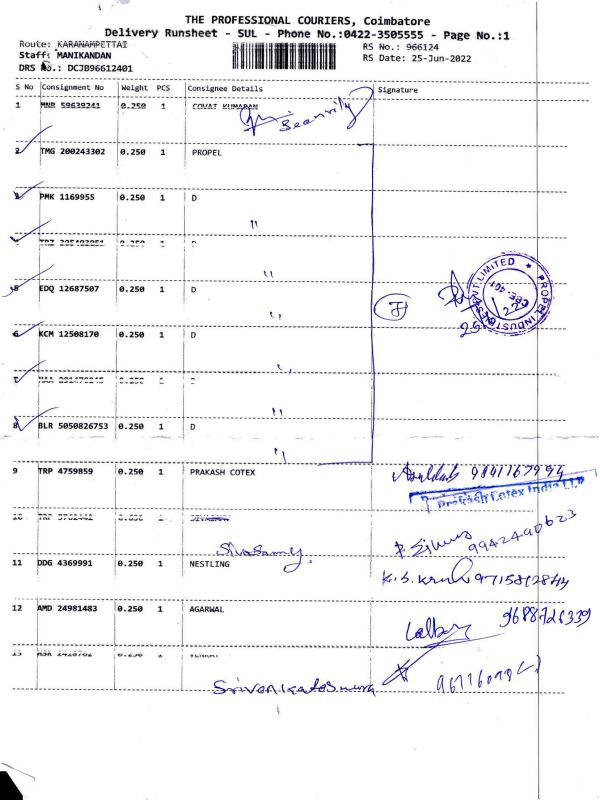 THE PROFESSIONAL COURIERS, Coimbatore
Delivery Runsheet - SUL - Phone No.:0422-3505555 - Page No.:1
Route: KARANAMPETTAI
RS No.: 966124
Staff: MANIKANDAN
RS Date: 25-Jun-2022
DRS No.: DCJB96612401
S No Consignment No Weight PCS Consignee Details Signature
1 MNR 59639241 0.250 1 COVAI KUMARAN
Security
2 TMG 200243302 0.250 1 PROPEL
3 PMK 1169955 0.250 1 D
"
4 0.250 1 D
"
5 EDQ 12687507 0.250 1 D
"
6 KCM 12508170 0.250 1 D
"
7 0.250 1 D
"
8 BLR 5050826753 0.250 1 D
"
PROPEL INDUSTRIES PRIVATE LIMITED
9 TRP 4759859 0.250 1 PRAKASH COTEX
Prakash Cotex India LLP
10 1 SIVASAMY
Sivasamy.
9942490623
11 DDG 4369991 0.250 1 NESTLING
12 AMD 24981483 0.250 1 AGARWAL
13 0.250 1 VENKAT
Srivenkateswara